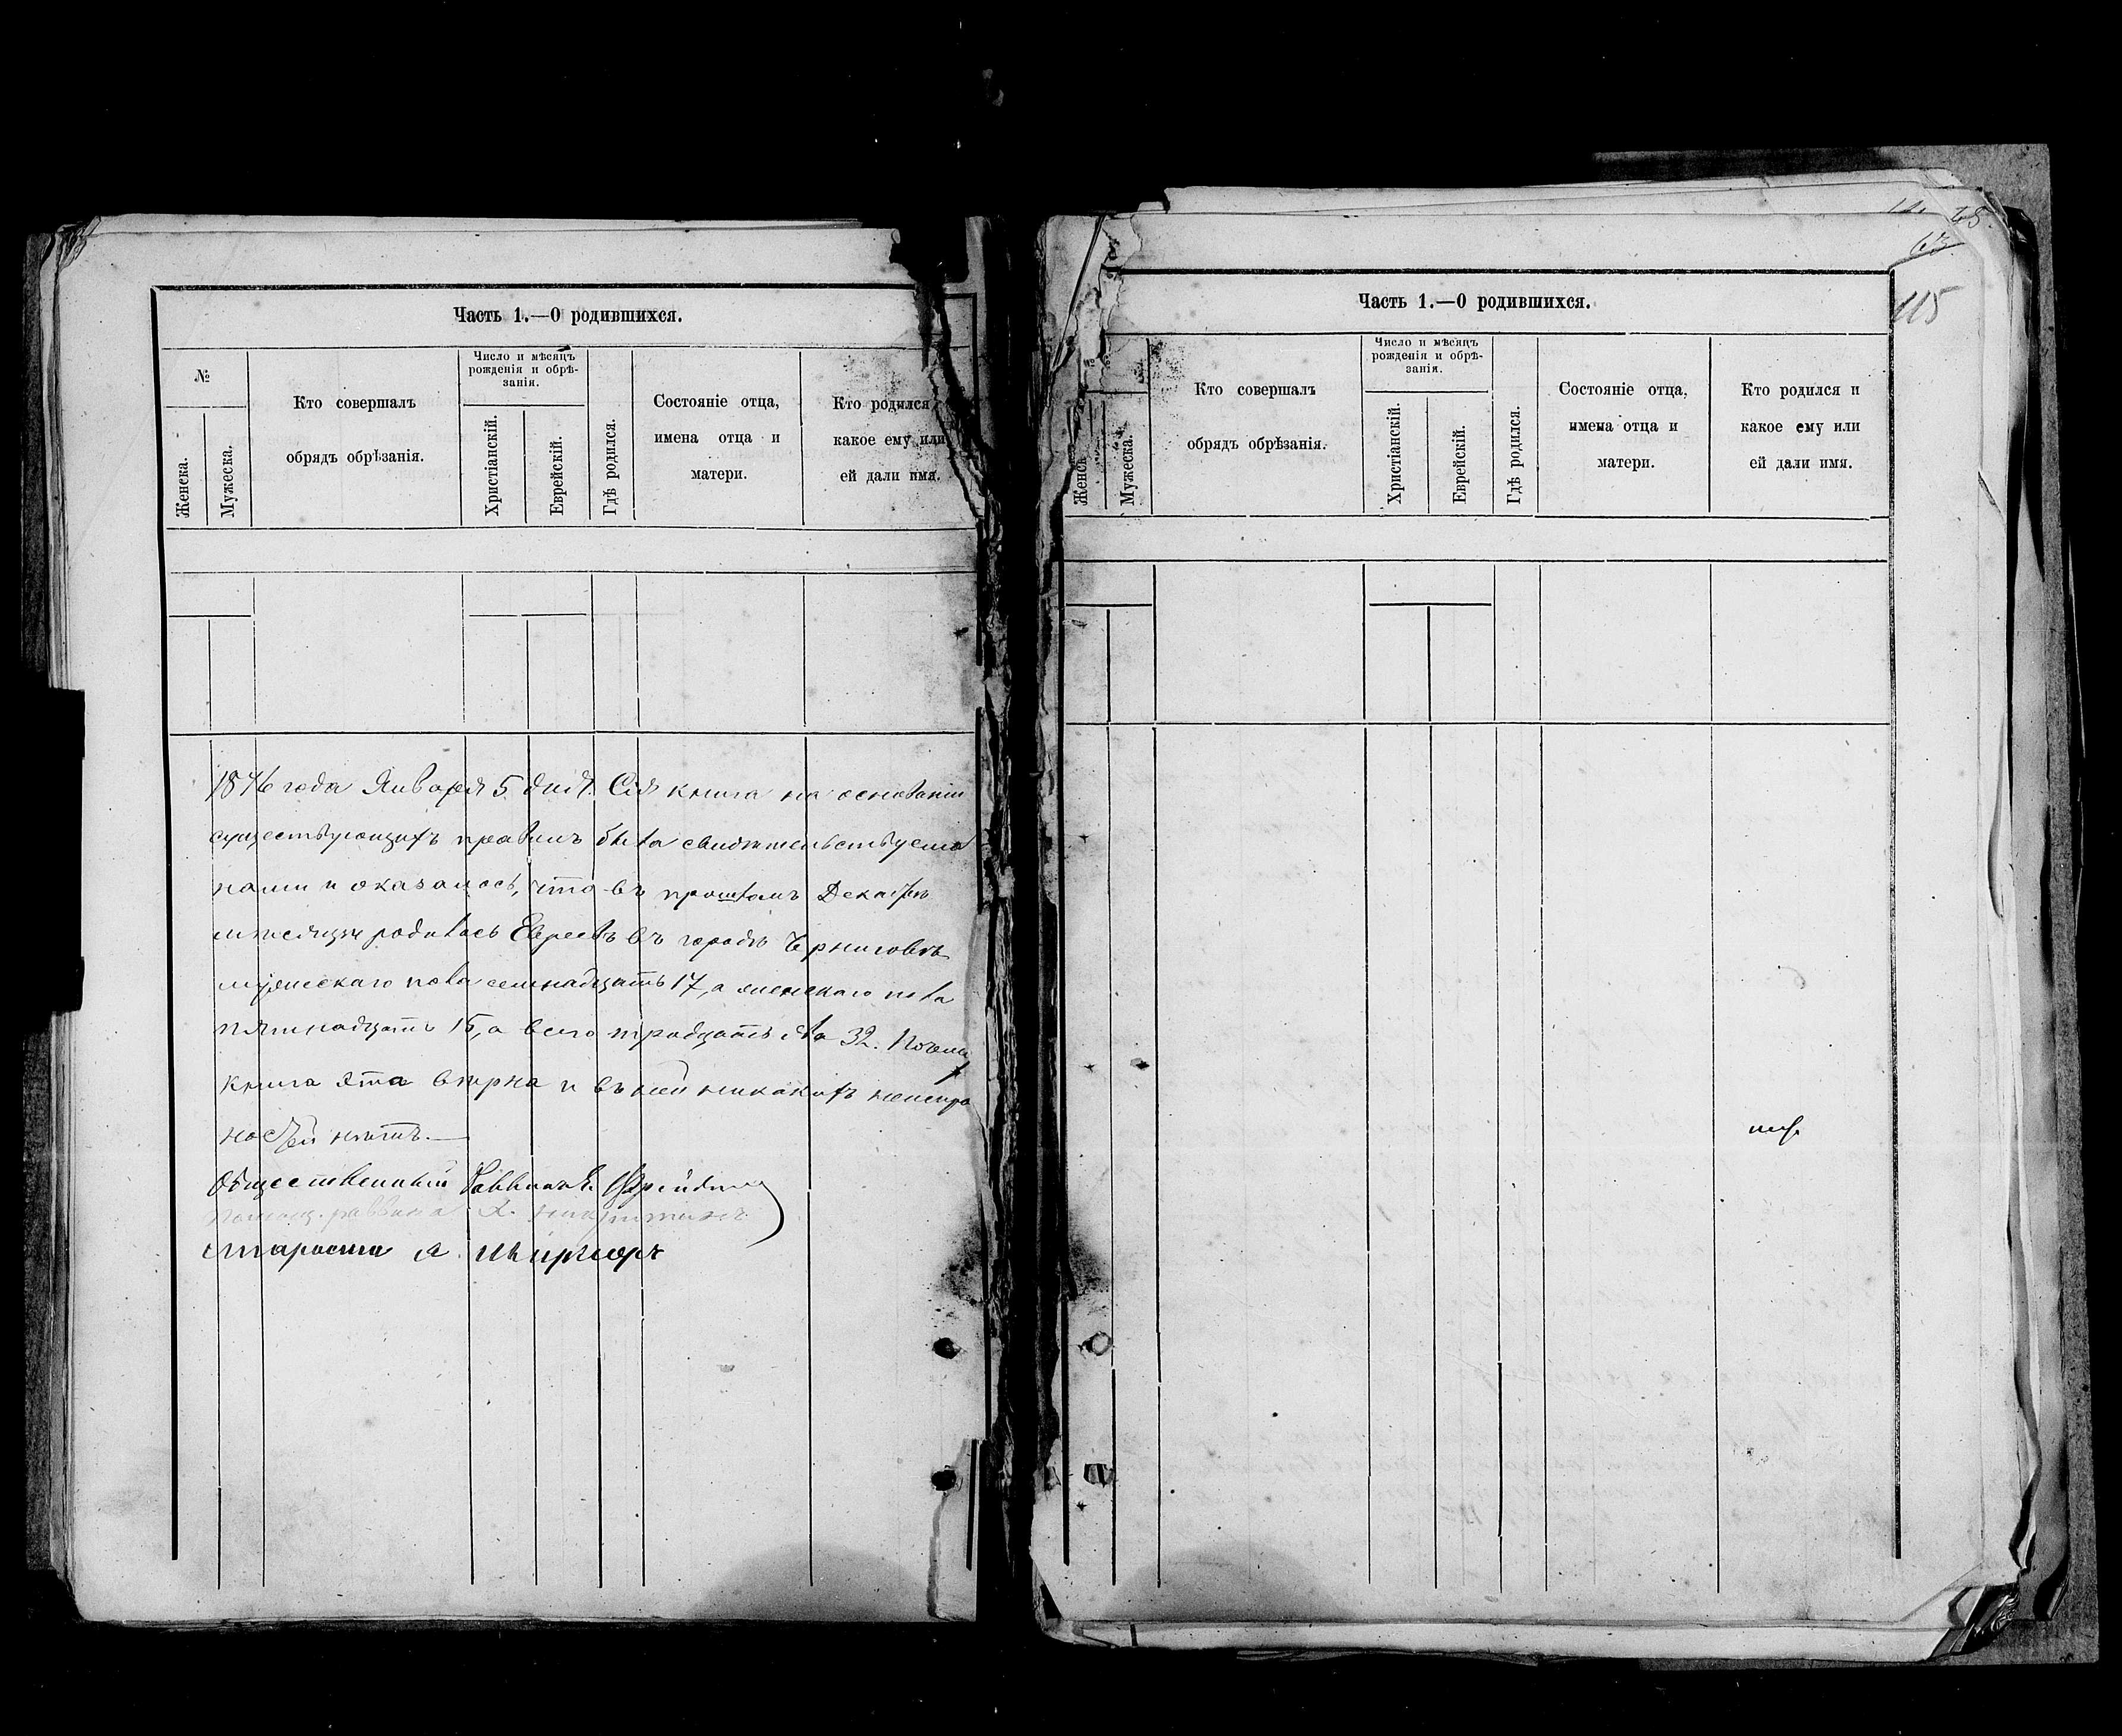 Часть 1.—О родившихся.
№
Женска.
Мужеска.
Кто совершалъ
обрядъ обрѣзанія.
Число и мѣсяцъ
рожденія и обрѣ-
занія.
Христіанскій.
Еврейскій.
Гдѣ родился.
Состояніе отца,
имена отца и
матери.
Кто родился
какое ему или
ей дали имя.
1876 года Января 5 дня. Сія книга на основаніи
существующихъ правилъ была свидѣтельствуема
нами и оказалось, что въ прошломъ Декабрѣ
мѣсяцѣ родилось Евреевъ въ городѣ Черниговѣ
мужескаго пола семнадцать 17, а женскаго пола
пятнадцать 15, а всего тридцать два 32. Почему
книга эта вѣрна и въ ней никакихъ неисправ
ностей нѣтъ.—
Общественный Раввинъ
Помощ. раввина
Староста
63
115
Часть 1.—О родившихся.
Женск
Мужеска.
Кто совершалъ
обрядъ обрѣзанія.
Число и мѣсяцъ
рожденія и обрѣ-
занія.
Христіанскій.
Еврейскій.
Гдѣ родился.
Состояніе отца,
имена отца и
матери.
Кто родился и
какое ему или
ей дали имя.